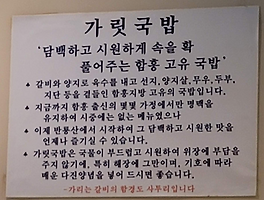 가릿국밥
'담백하고 시원하게 속을 확
풀어주는 함흥 고유 국밥'
♠ 갈비와 양지로 육수를 내고 선지, 양지살, 무우, 두부,
지단 등을 곁들인 함흥지방 고유의 국밥입니다.
♠ 지금까지 함흥 출신의 몇몇 가정에서만 명맥을
유지하여 시중에는 없는 메뉴였으나
♠ 이제 반룡산에서 시작하여 그 담백하고 시원한 맛을
언제나 즐기실 수 있습니다.
♠ 가릿국밥은 국물이 부드럽고 시원하여 위장에 부담을
주지 않기에, 특히 해장에 그만이며, 기호에 따라
매운 다진양념을 넣어 드시면 좋습니다.
-가리는 갈비의 함경도 사투리입니다